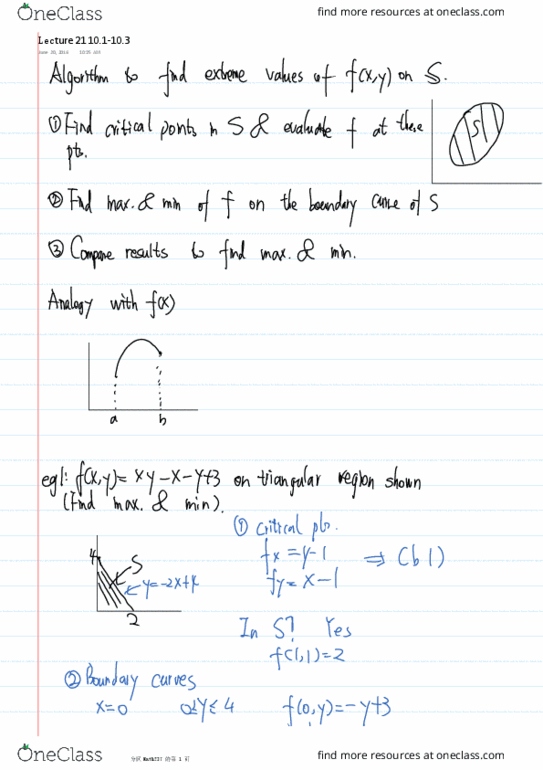 OneClass
find more resources at oneclass.com
Lecture 21 10.1-10.3
Algorithm to find extreme values of f(x,y) on S.
① Find critical points in S & evaluate f at these
pts.
S
② Find max. & min of f on the boundary curve of S
③ Compare results to find max. & min.
Analogy with f(x)
a b
eg1: f(x,y)= xy-x-y+3 on triangular region shown
(Find max. & min).
① Critical pts.
fx = y-1 ⇒ (1,1)
fy = x-1
4 S
y=-2x+4
2
In S? Yes
f(1,1)=2
② Boundary curves
x=0 0≤y≤4 f(0,y)=-y+3
OneClass
find more resources at oneclass.com